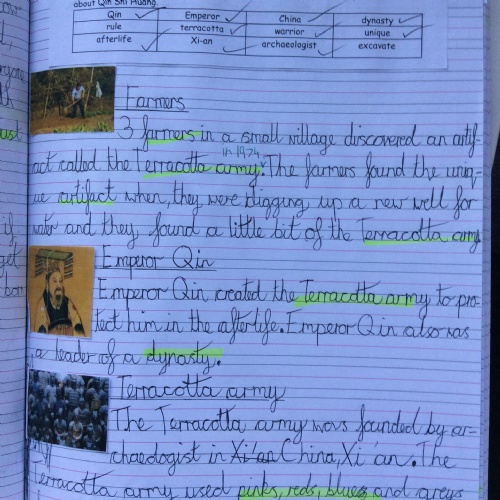 about Qin Shi Huang.
Qin Emperor China dynasty
rule terracotta warrior unique
afterlife Xi-an archaeologist excavate
Farmers
3 farmers in a small village discovered an artif-
in 1974
act called the Terracotta army. The farmers found the uniq-
ue artifact when, they were digging up a new well for
water and they found a little bit of the Terracotta army
Emperor Qin
Emperor Qin created the Terracotta army to pro-
tect him in the afterlife. Emperor Qin also was
a leader of a dynasty.
Terracotta army
The Terracotta army was founded by ar-
chaedogist in Xi'an China, Xi an. The
Terracotta army used pinks, reds, blues and greys